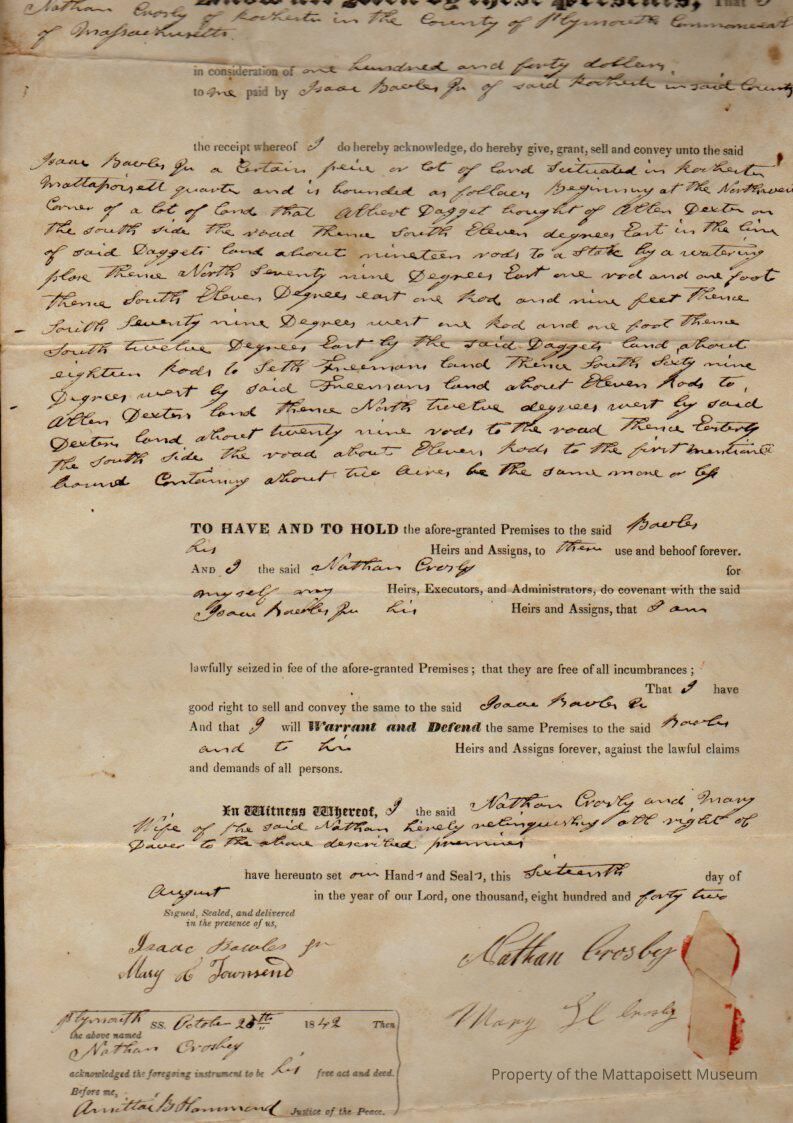 Know all Men by these Presents, That I
Nathan Crosby of Rochester in the County of Plymouth Commonwealth
of Massachusetts
in consideration of one hundred and forty dollars,
to me paid by Isaac Bowles Jr of said Rochester in said County
the receipt whereof I do hereby acknowledge, do hereby give, grant, sell and convey unto the said
Isaac Bowles Jr a Certain peice or lot of land Situated in Rochester
Mattapoisett quarter and is bounded as follows Beginning at the Northwest
Corner of a lot of land that Albert Dagget bought of Allen Dexter on
the south side the road thence South Eleven degrees East in the line
of said Daggets land about nineteen rods to a Stake by a watering
place thence North Seventy nine Degrees East one rod and one foot
thence South Eleven Degrees east one Rod and nine feet thence
South Seventy nine Degrees west one Rod and one foot thence
South twelve Degrees East by the said Daggets land about
eighteen Rods to Seth Freemans land thence South Sixty nine
Degrees west by said Freemans land about Eleven Rods to
Allen Dexters land thence North twelve degrees west by said
Dexters land about twenty nine rods to the road thence Easterly
the South Side the road about Eleven Rods to the first mentioned
bound Containing about two Acres be the same more or less
TO HAVE AND TO HOLD the afore-granted Premises to the said Bowles
his Heirs and Assigns, to them use and behoof forever.
AND I the said Nathan Crosby for
myself my Heirs, Executors, and Administrators, do covenant with the said
Isaac Bowles Jr his Heirs and Assigns, that I am
lawfully seized in fee of the afore-granted Premises; that they are free of all incumbrances;
That I have
good right to sell and convey the same to the said Isaac Bowles Jr
And that I will Warrant and Defend the same Premises to the said Bowles
and to his Heirs and Assigns forever, against the lawful claims
and demands of all persons.
In Witness Whereof, I the said Nathan Crosby and Mary
Wife of the said Nathan hereby relinquishing all right of
Dower to the above described premises
have hereunto set our Hands and Seals, this Sixteenth day of
August in the year of our Lord, one thousand, eight hundred and forty two
Signed, Sealed, and delivered
in the presence of us,
Isaac Bowles Jr
Mary Townsend
Nathan Crosby
Mary Crosby
Plymouth SS. October 1842 Then
the above named
Nathan Crosby
acknowledged the foregoing instrument to be his free act and deed.
Before me,
Amittai B Hammond Justice of the Peace.
Property of the Mattapoisett Museum